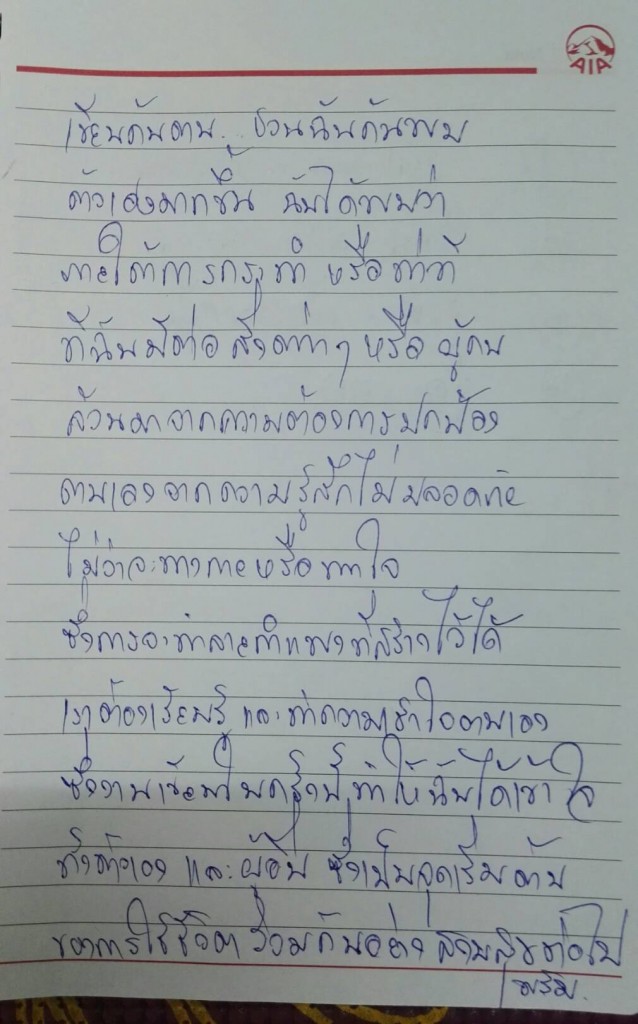 AIA
เขียนค้นตน ชวนฉันค้นพบ
ตัวเองมากขึ้น ฉันได้พบว่า
ภายใต้การกระทำ หรือท่าที
ที่ฉันมีต่อ สิ่งต่างๆ หรือ ผู้คน
ล้วนมาจากความต้องการปกป้อง
ตนเองจากความรู้สึกไม่ปลอดภัย
ไม่ว่าจะทางกายหรือทางใจ
ซึ่งการจะทำลายกำแพงที่สร้างไว้ได้
เราต้องเรียนรู้ และทำความเข้าใจตนเอง
ซึ่งงานเขียนในครั้งนี้ ทำให้ฉันได้เข้าใจ
ทั้งตัวเอง และผู้อื่น ซึ่งเป็นจุดเริ่มต้น
ของการใช้ชีวิต ร่วมกันอย่าง สงบสุขต่อไป